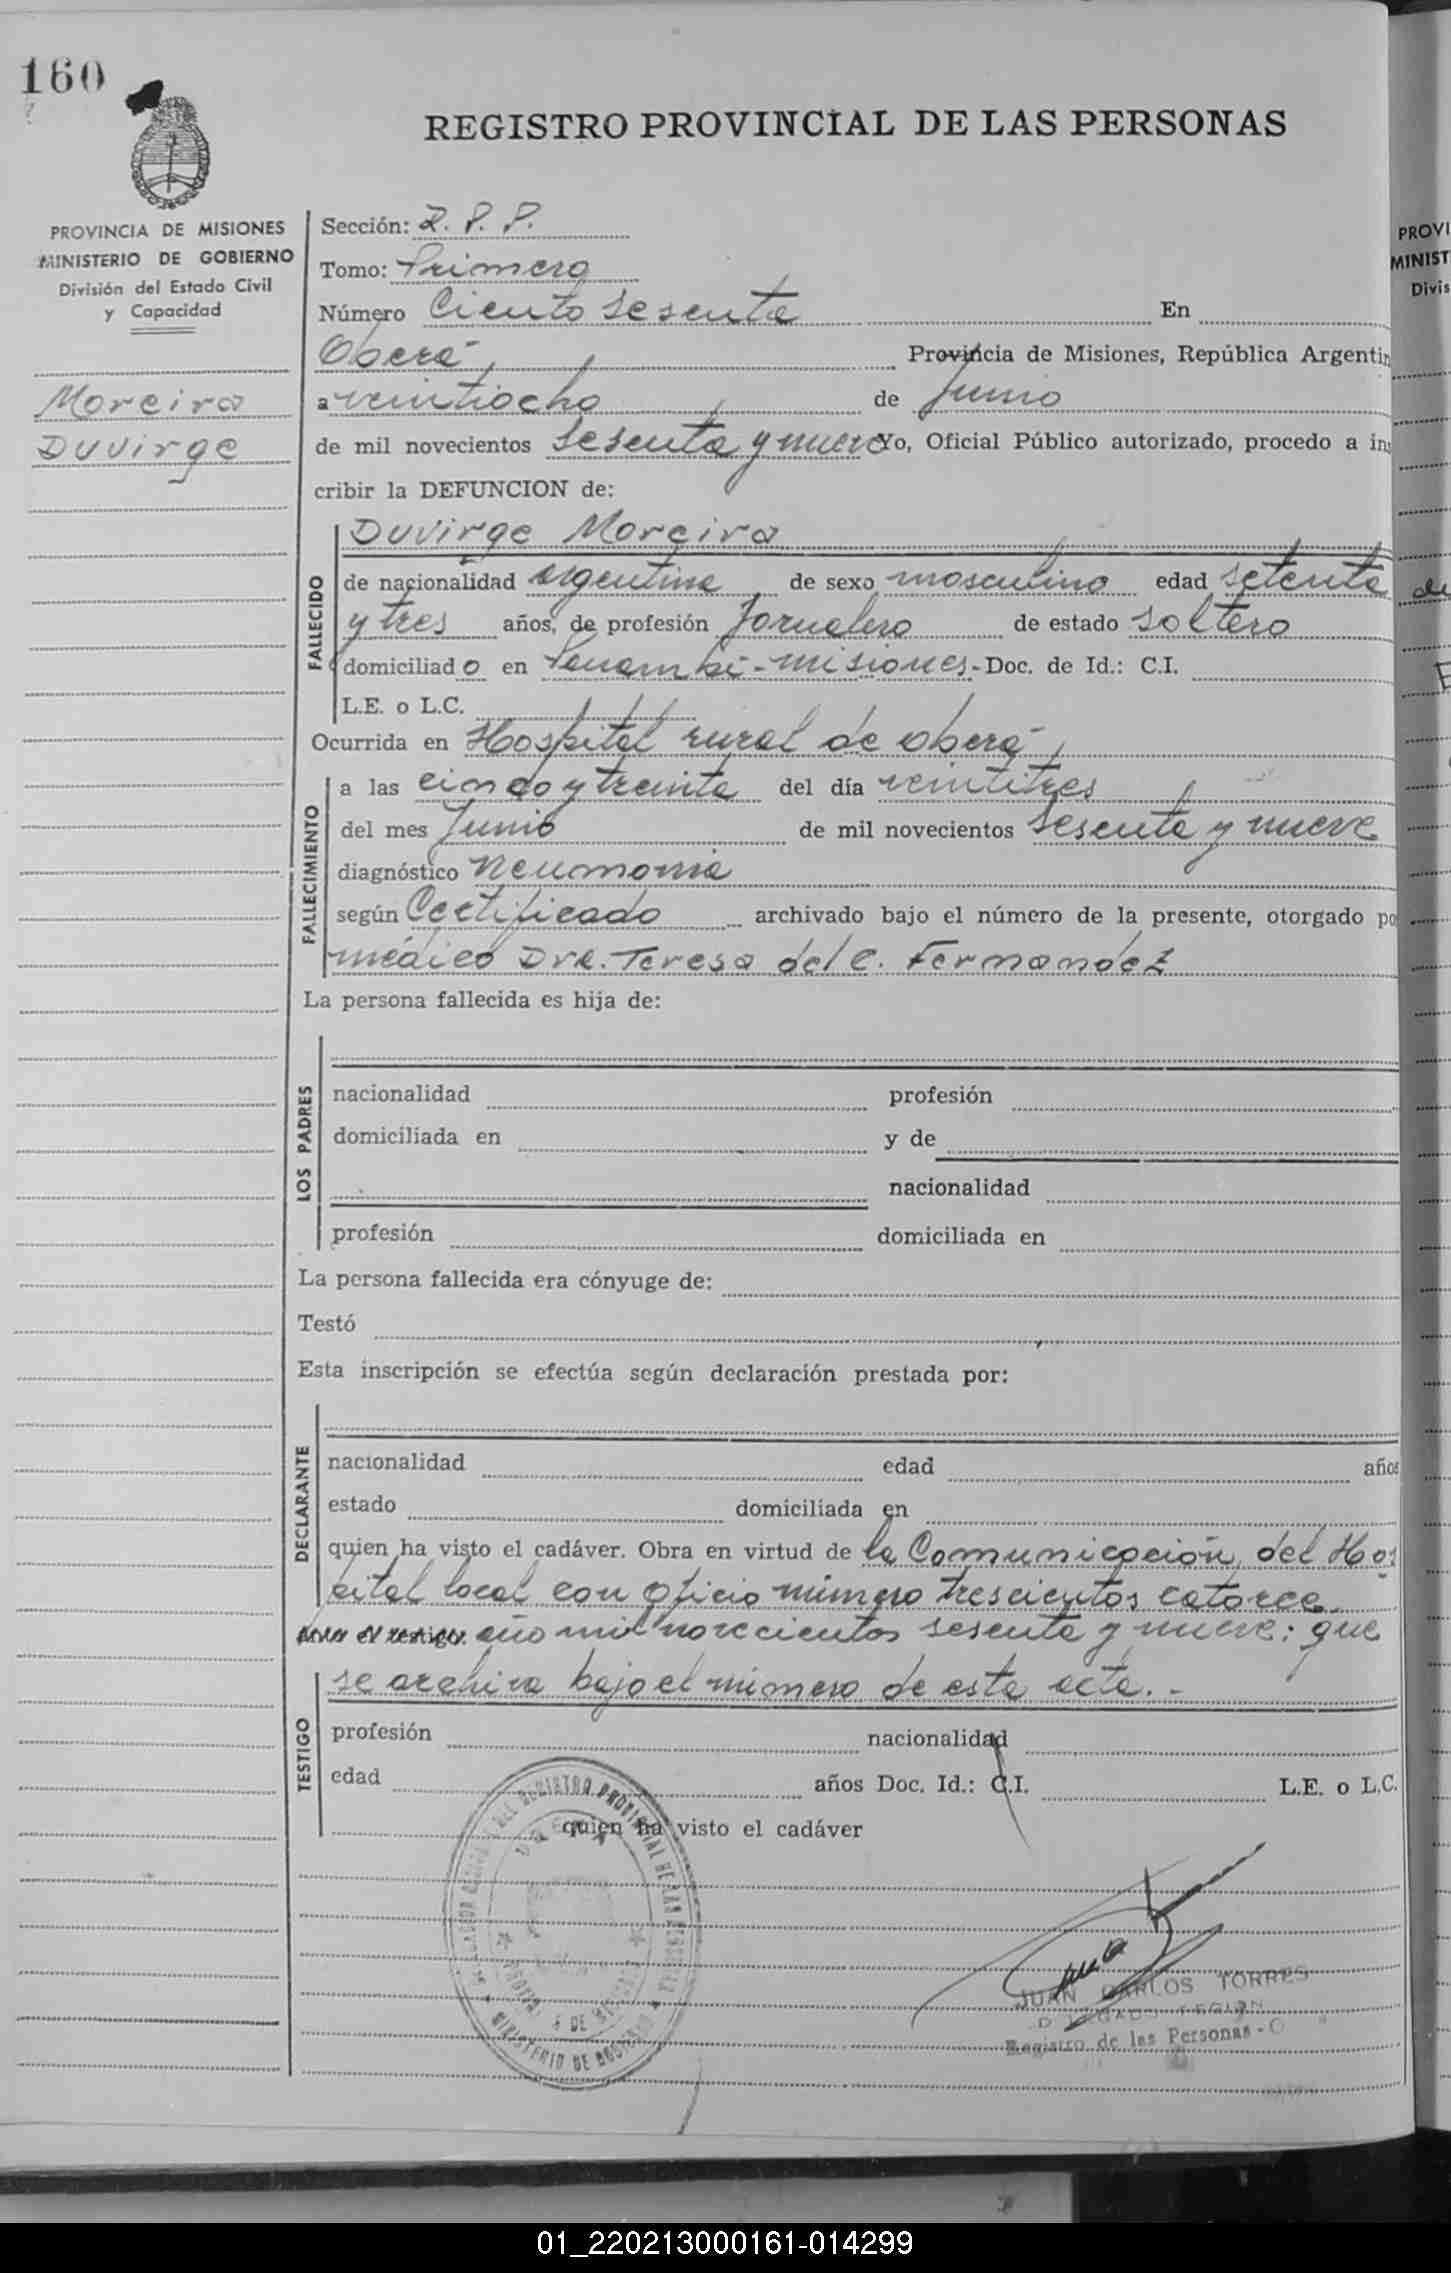 160
REGISTRO PROVINCIAL DE LAS PERSONAS
PROVINCIA DE MISIONES
MINISTERIO DE GOBIERNO
División del Estado Civil
y Capacidad
Moreira
Duvirge
Sección: R. P. P.
Tomo: Primero
Número Ciento sesenta En
Oberá, Provincia de Misiones, República Argentin
a veintiocho de Junio
de mil novecientos sesenta y nueve Yo, Oficial Público autorizado, procedo a ins
cribir la DEFUNCION de:
FALLECIDO
Duvirge Moreira
de nacionalidad argentina de sexo masculino edad setenta
y tres años, de profesión Jornalero de estado soltero
domiciliado en Panambí-misiones- Doc. de Id.: C.I.
L.E. o L.C.
Ocurrida en Hospital rural de oberá,
FALLECIMIENTO
a las cinco y treinta del día veintitres
del mes Junio de mil novecientos sesenta y nueve
diagnóstico Neumonia
según Certificado archivado bajo el número de la presente, otorgado po
médico Dra. Teresa del C. Fernandez
La persona fallecida es hija de:
LOS PADRES
nacionalidad profesión
domiciliada en y de
nacionalidad
profesión domiciliada en
La persona fallecida era cónyuge de:
Testó
Esta inscripción se efectúa según declaración prestada por:
DECLARANTE
nacionalidad edad años
estado domiciliada en
quien ha visto el cadáver. Obra en virtud de la Comunicación del Hos
pital local con oficio número trescientos catorce
año mil novecientos sesenta y nueve; que
se archiva bajo el número de esta acta.-
TESTIGO
profesión nacionalidad
edad años Doc. Id.: C.I. L.E. o L.C.
quien ha visto el cadáver
JUAN CARLOS TORRES
Registro de las Personas - O
PROVI
MINIST
Divis
01_220213000161-014299